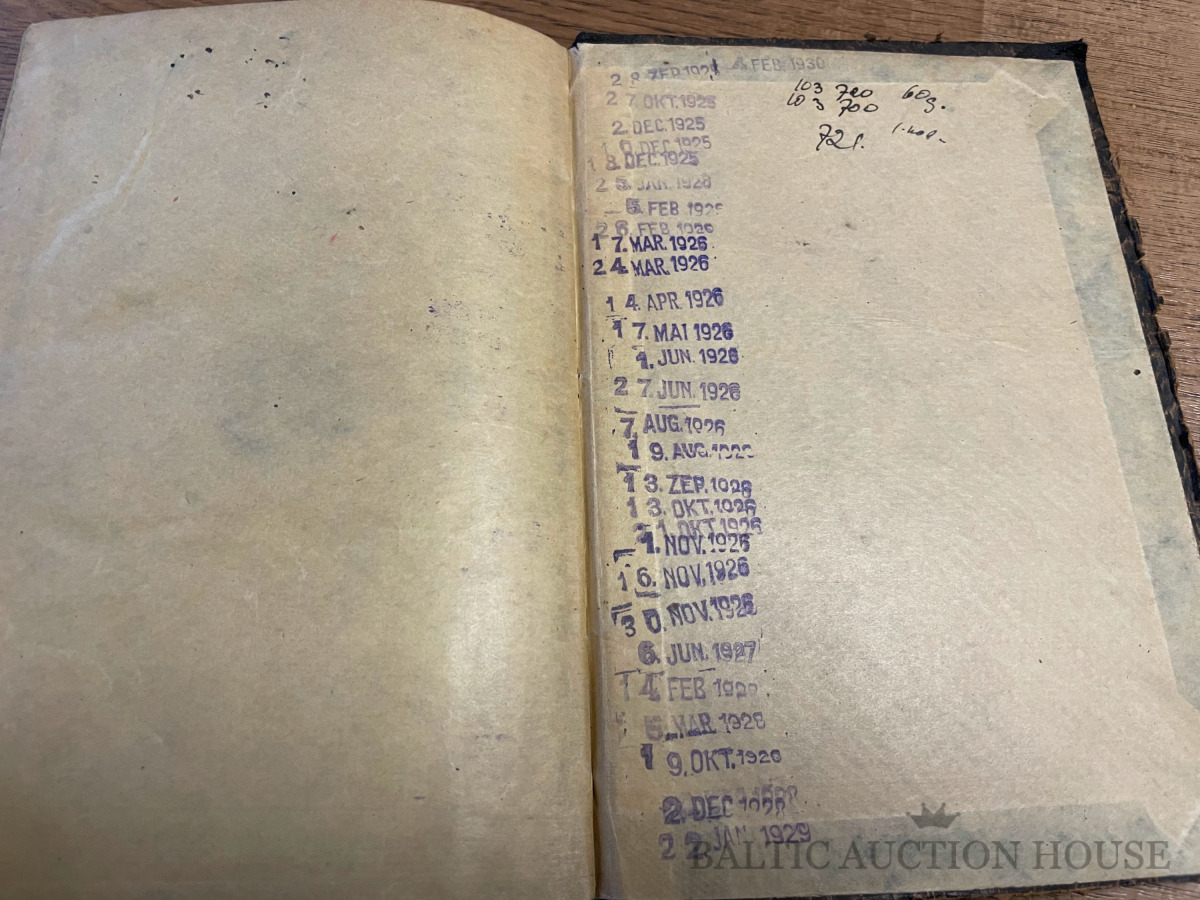 2 8. ZEP. 1925 4. FEB. 1930
2 7. OKT. 1925
2. DEC. 1925
1 0. DEC. 1925
1 8. DEC. 1925
2 5. JAN. 1926
5. FEB 1926
2 6. FEB. 1926
1 7. MAR. 1926
2 4. MAR. 1926
1 4. APR. 1926
1 7. MAI 1926
1. JUN. 1926
2 7. JUN. 1926
7. AUG. 1926
1 9. AUG. 1926
1 3. ZEP. 1926
1 3. OKT. 1926
1. OKT. 1926
1. NOV. 1926
1 6. NOV. 1926
3 0. NOV. 1926
6. JUN. 1927
1 4 FEB 192
6. MAR. 1928
1 9. OKT. 1928
2. DEC 1928
2 2. JAN. 1929
103 700 60
103 700
72г.
BALTIC AUCTION HOUSE